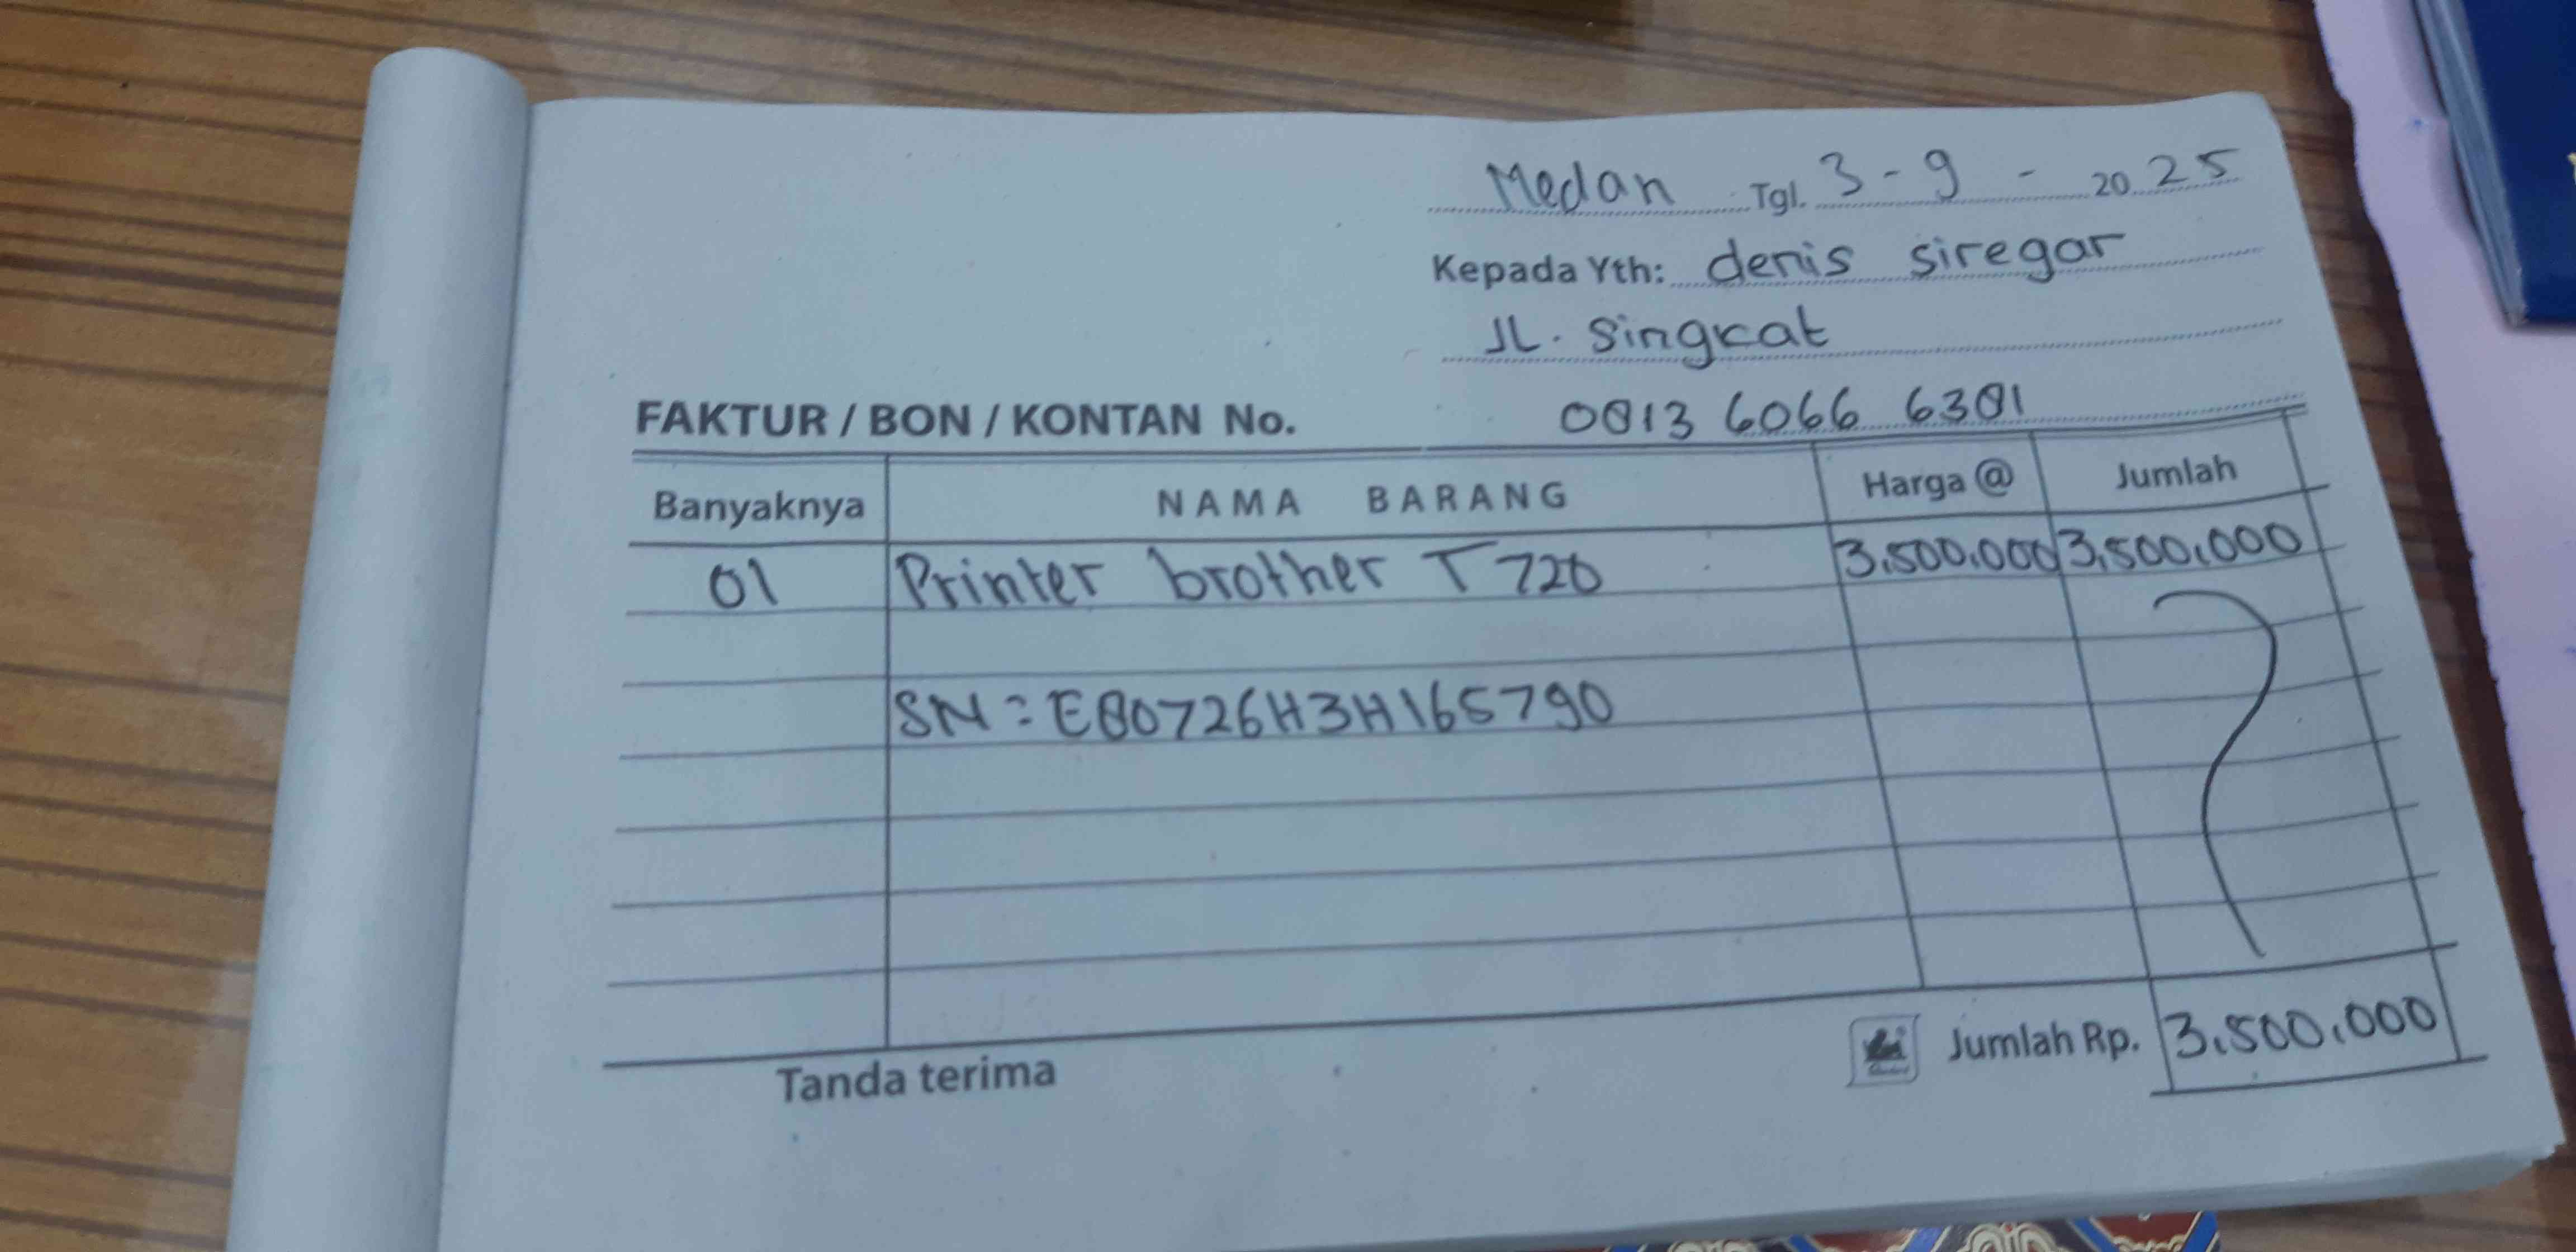 Medan Tgl. 3 - 9 - 2025
Kepada Yth: denis siregar
JL. Singkat
FAKTUR / BON / KONTAN No.
0813 6066 6381
Banyaknya NAMA BARANG Harga @ Jumlah
01 Printer brother T 720 3.500.000 3.500.000
SN = E80726H3H165790
Tanda terima
Jumlah Rp. 3.500.000